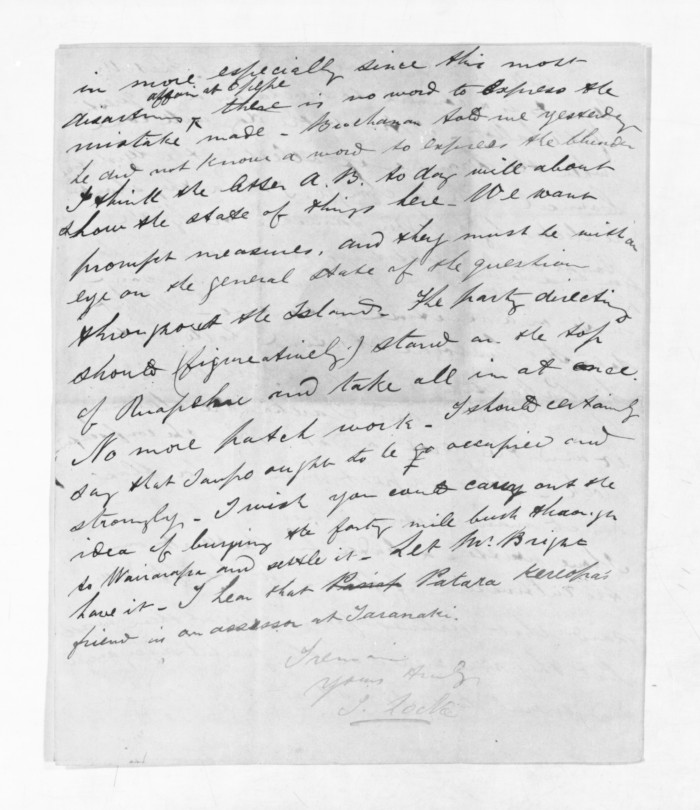 in more especially since this most
affair at Opepe
disastrous there is no word to express the
mistake made - Buchanan told me yesterday
he did not know a word to express the blunder
I think the letter A. B. to day will about
show the state of things here - We want
prompt measures, and they must be with an
eye on the general state of the question
throughout the Island. The party directing
should (figuratively) stand on the top
of Ruapehu and take all in at once.
No more patch work - I should certainly
say that Taupo ought to be occupied and
strongly - I wish you could carry out the
idea of buying the forty mile bush through
to Wairarapa and settle it - Let Mr. Bright
have it - I hear that Patara Kereopas
friend is an assessor at Taranaki.
I remain
Yours truly
S. Locke